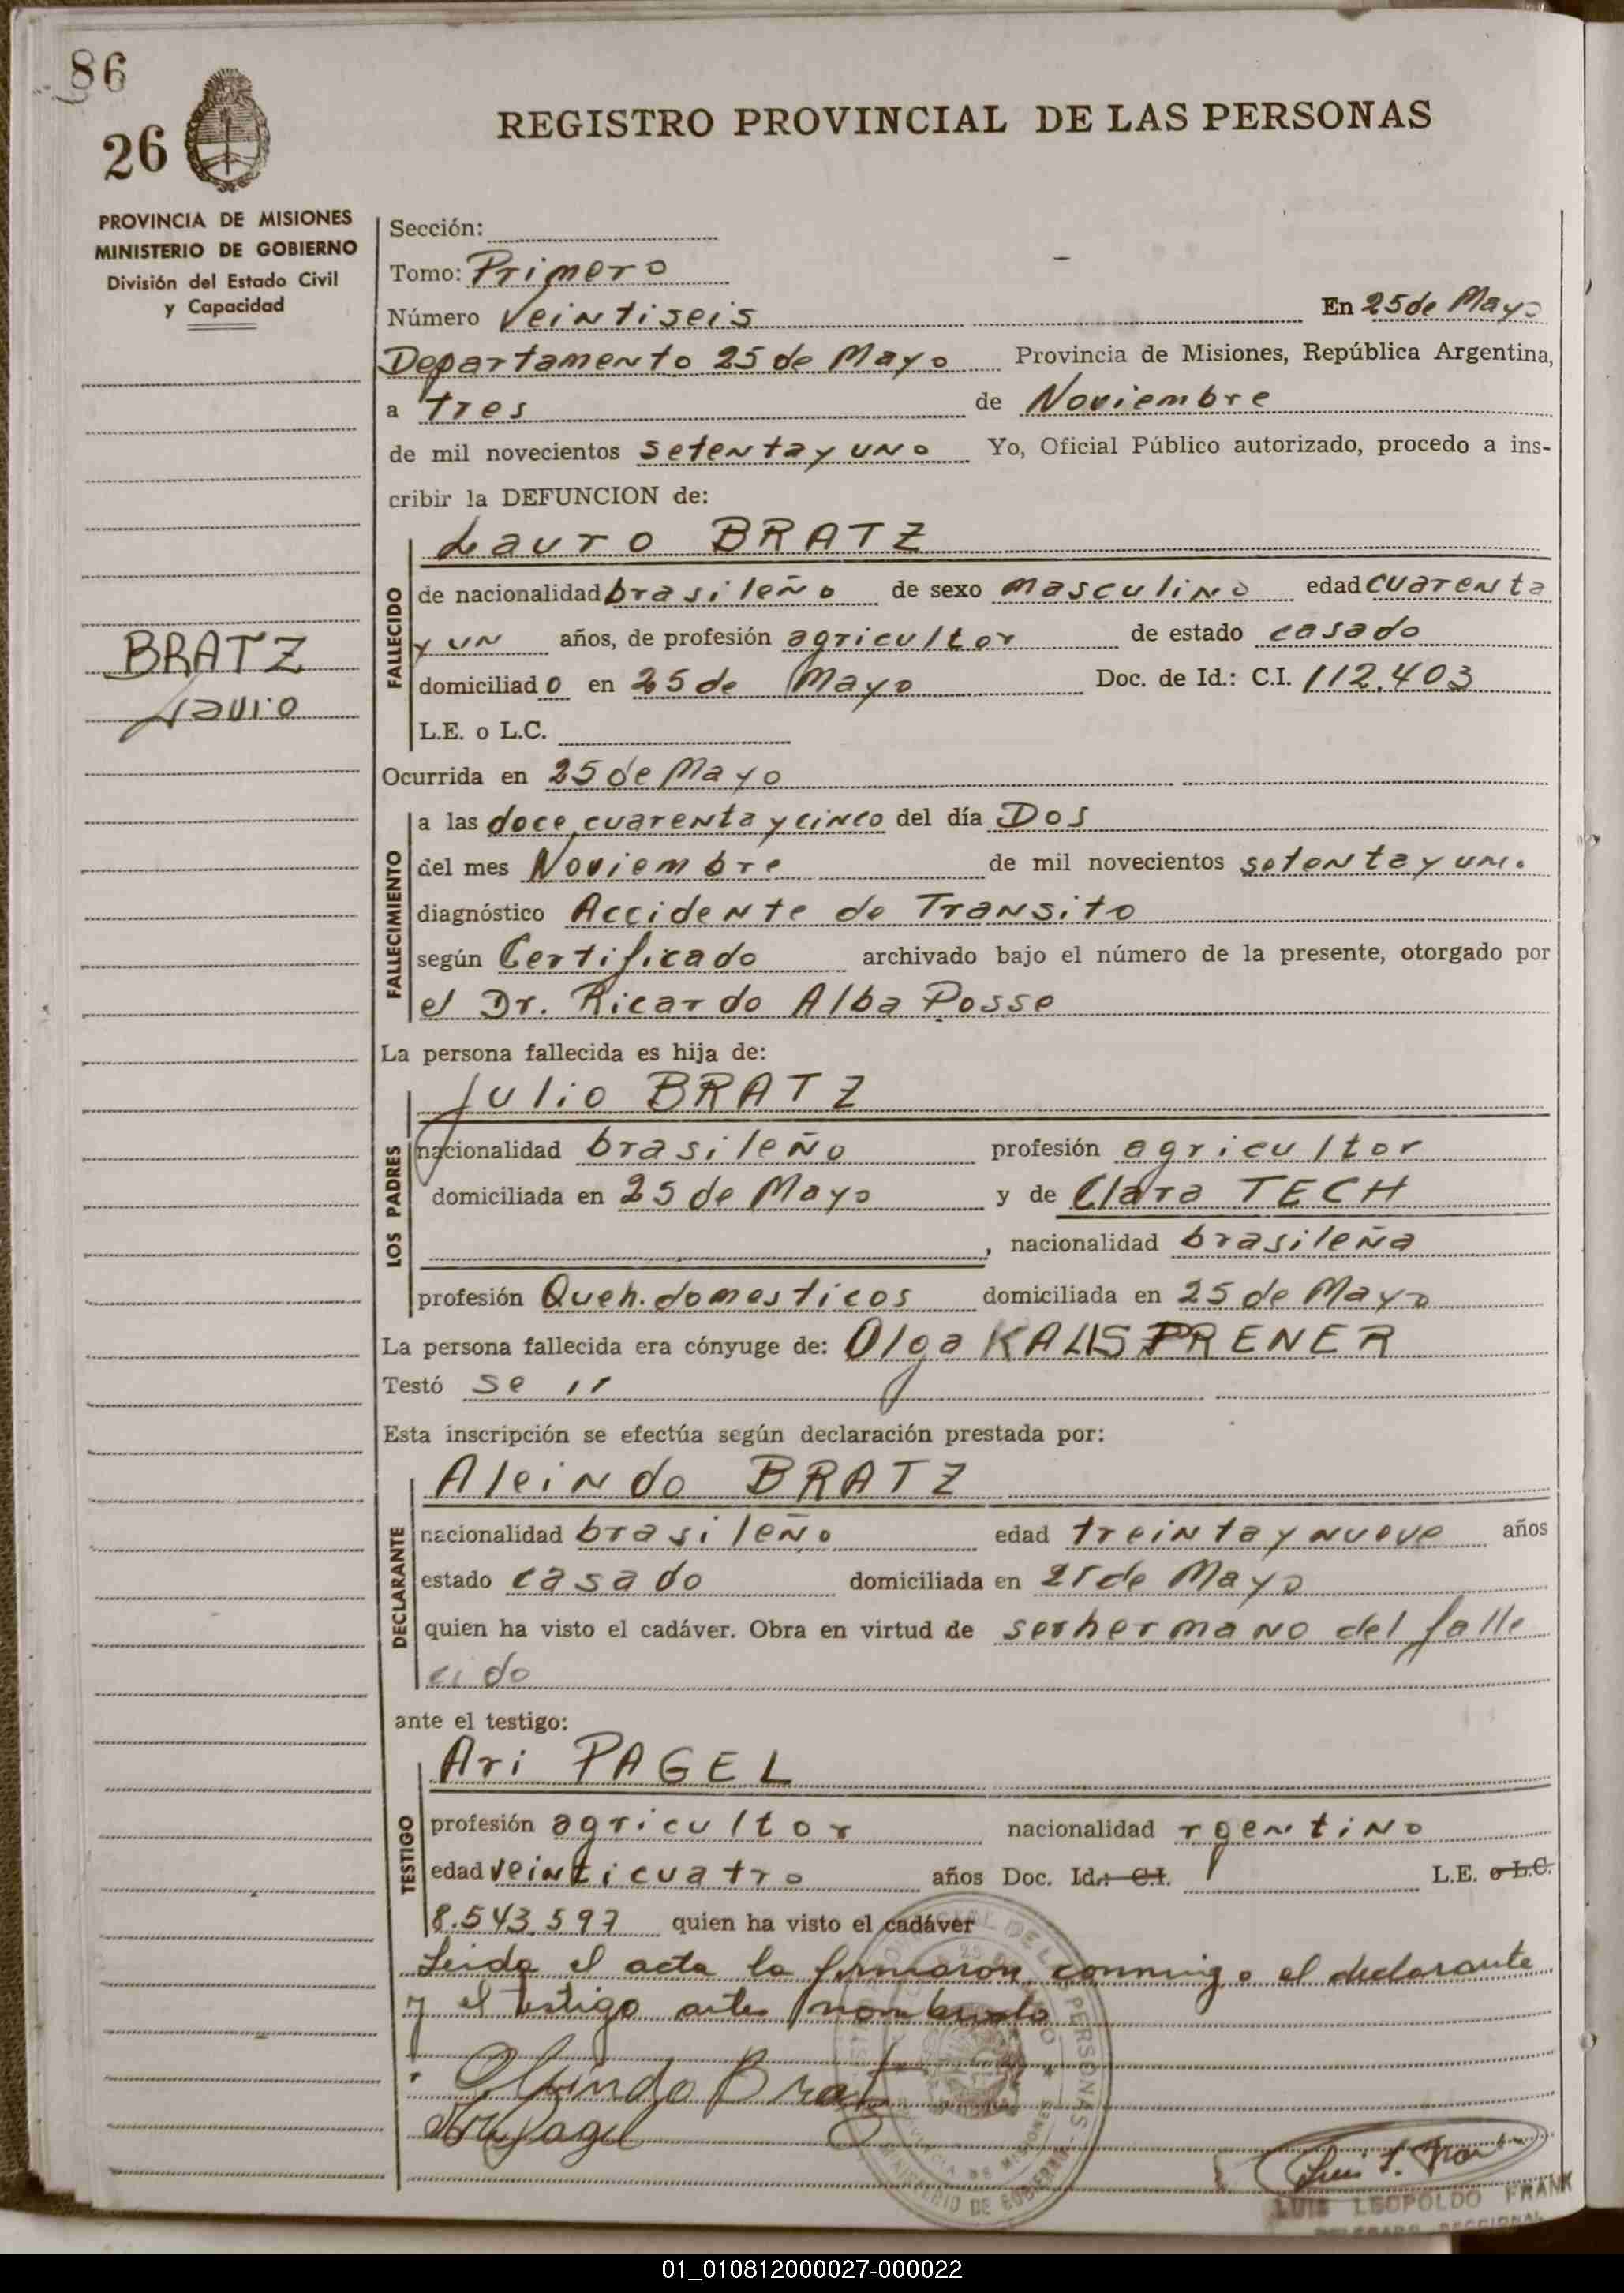 86
26
REGISTRO PROVINCIAL DE LAS PERSONAS
PROVINCIA DE MISIONES
MINISTERIO DE GOBIERNO
División del Estado Civil
y Capacidad
BRATZ
Lauro
Sección:
Tomo: Primero
Número Veintiseis En 25 de Mayo
Departamento 25 de Mayo Provincia de Misiones, República Argentina,
a tres de Noviembre
de mil novecientos setenta y uno Yo, Oficial Público autorizado, procedo a ins-
cribir la DEFUNCION de:
Lauro BRATZ
FALLECIDO
de nacionalidad brasileño de sexo masculino edad cuarenta
y un años, de profesión agricultor de estado casado
domiciliado en 25 de Mayo Doc. de Id.: C.I. 112.403
L.E. o L.C.
Ocurrida en 25 de Mayo
FALLECIMIENTO
a las doce, cuarenta y cinco del día Dos
del mes Noviembre de mil novecientos setenta y uno
diagnóstico Accidente de Transito
según Certificado archivado bajo el número de la presente, otorgado por
el Dr. Ricardo Alba Posse
La persona fallecida es hija de:
LOS PADRES
Julio BRATZ
nacionalidad brasileño profesión agricultor
domiciliada en 25 de Mayo y de Clara TECH
, nacionalidad brasileña
profesión Queh. domesticos domiciliada en 25 de Mayo
La persona fallecida era cónyuge de: Olga
Testó se
Esta inscripción se efectúa según declaración prestada por:
DECLARANTE
Aleindo BRATZ
nacionalidad brasileño edad treinta y nueve años
estado casado domiciliada en 25 de Mayo
quien ha visto el cadáver. Obra en virtud de ser hermano del falle
cido
ante el testigo:
TESTIGO
Ari PAGEL
profesión agricultor nacionalidad rgentino
edad veinticuatro años Doc. Id.: C.I. L.E. o L.C.
8.543.597 quien ha visto el cadáver
Leida el acta la firmaron conmigo el declarante
y el testigo antes nombrado
Bratz
Ari Pagel
LUIS LEOPOLDO FRANK
DELEGADO SECCIONAL
01_010812000027-000022